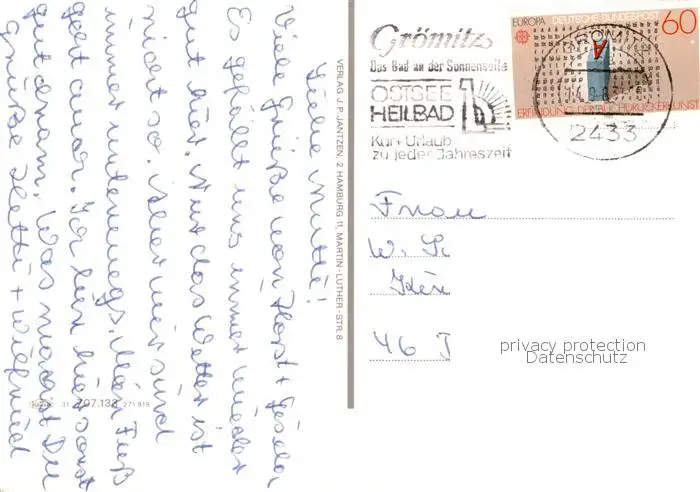 Liebe Mutti!
Viele Grüße von Horst + Gisela.
Es gefällt uns immer wieder
gut hier. Nur das Wetter ist
nicht so. Aber wir sind
immer unterwegs. Mein Fuß
geht zwar. Ich bin hier sonst
gut dran. Was machst Du
Grüße Hetti + Wilfried
VERLAG J.P. JANTZEN, 2 HAMBURG 11, MARTIN-LUTHER-STR. 8
31 707.138 271 819
Grömitz
Das Bad an der Sonnenseite
OSTSEE
HEILBAD
Kur + Urlaub
zu jeder Jahreszeit
EUROPA DEUTSCHE BUNDESPOST 60
ERFINDUNG DER BUCHDRUCKERKUNST
GRÖMITZ
2433
Frau
W. 
46
privacy protection
Datenschutz